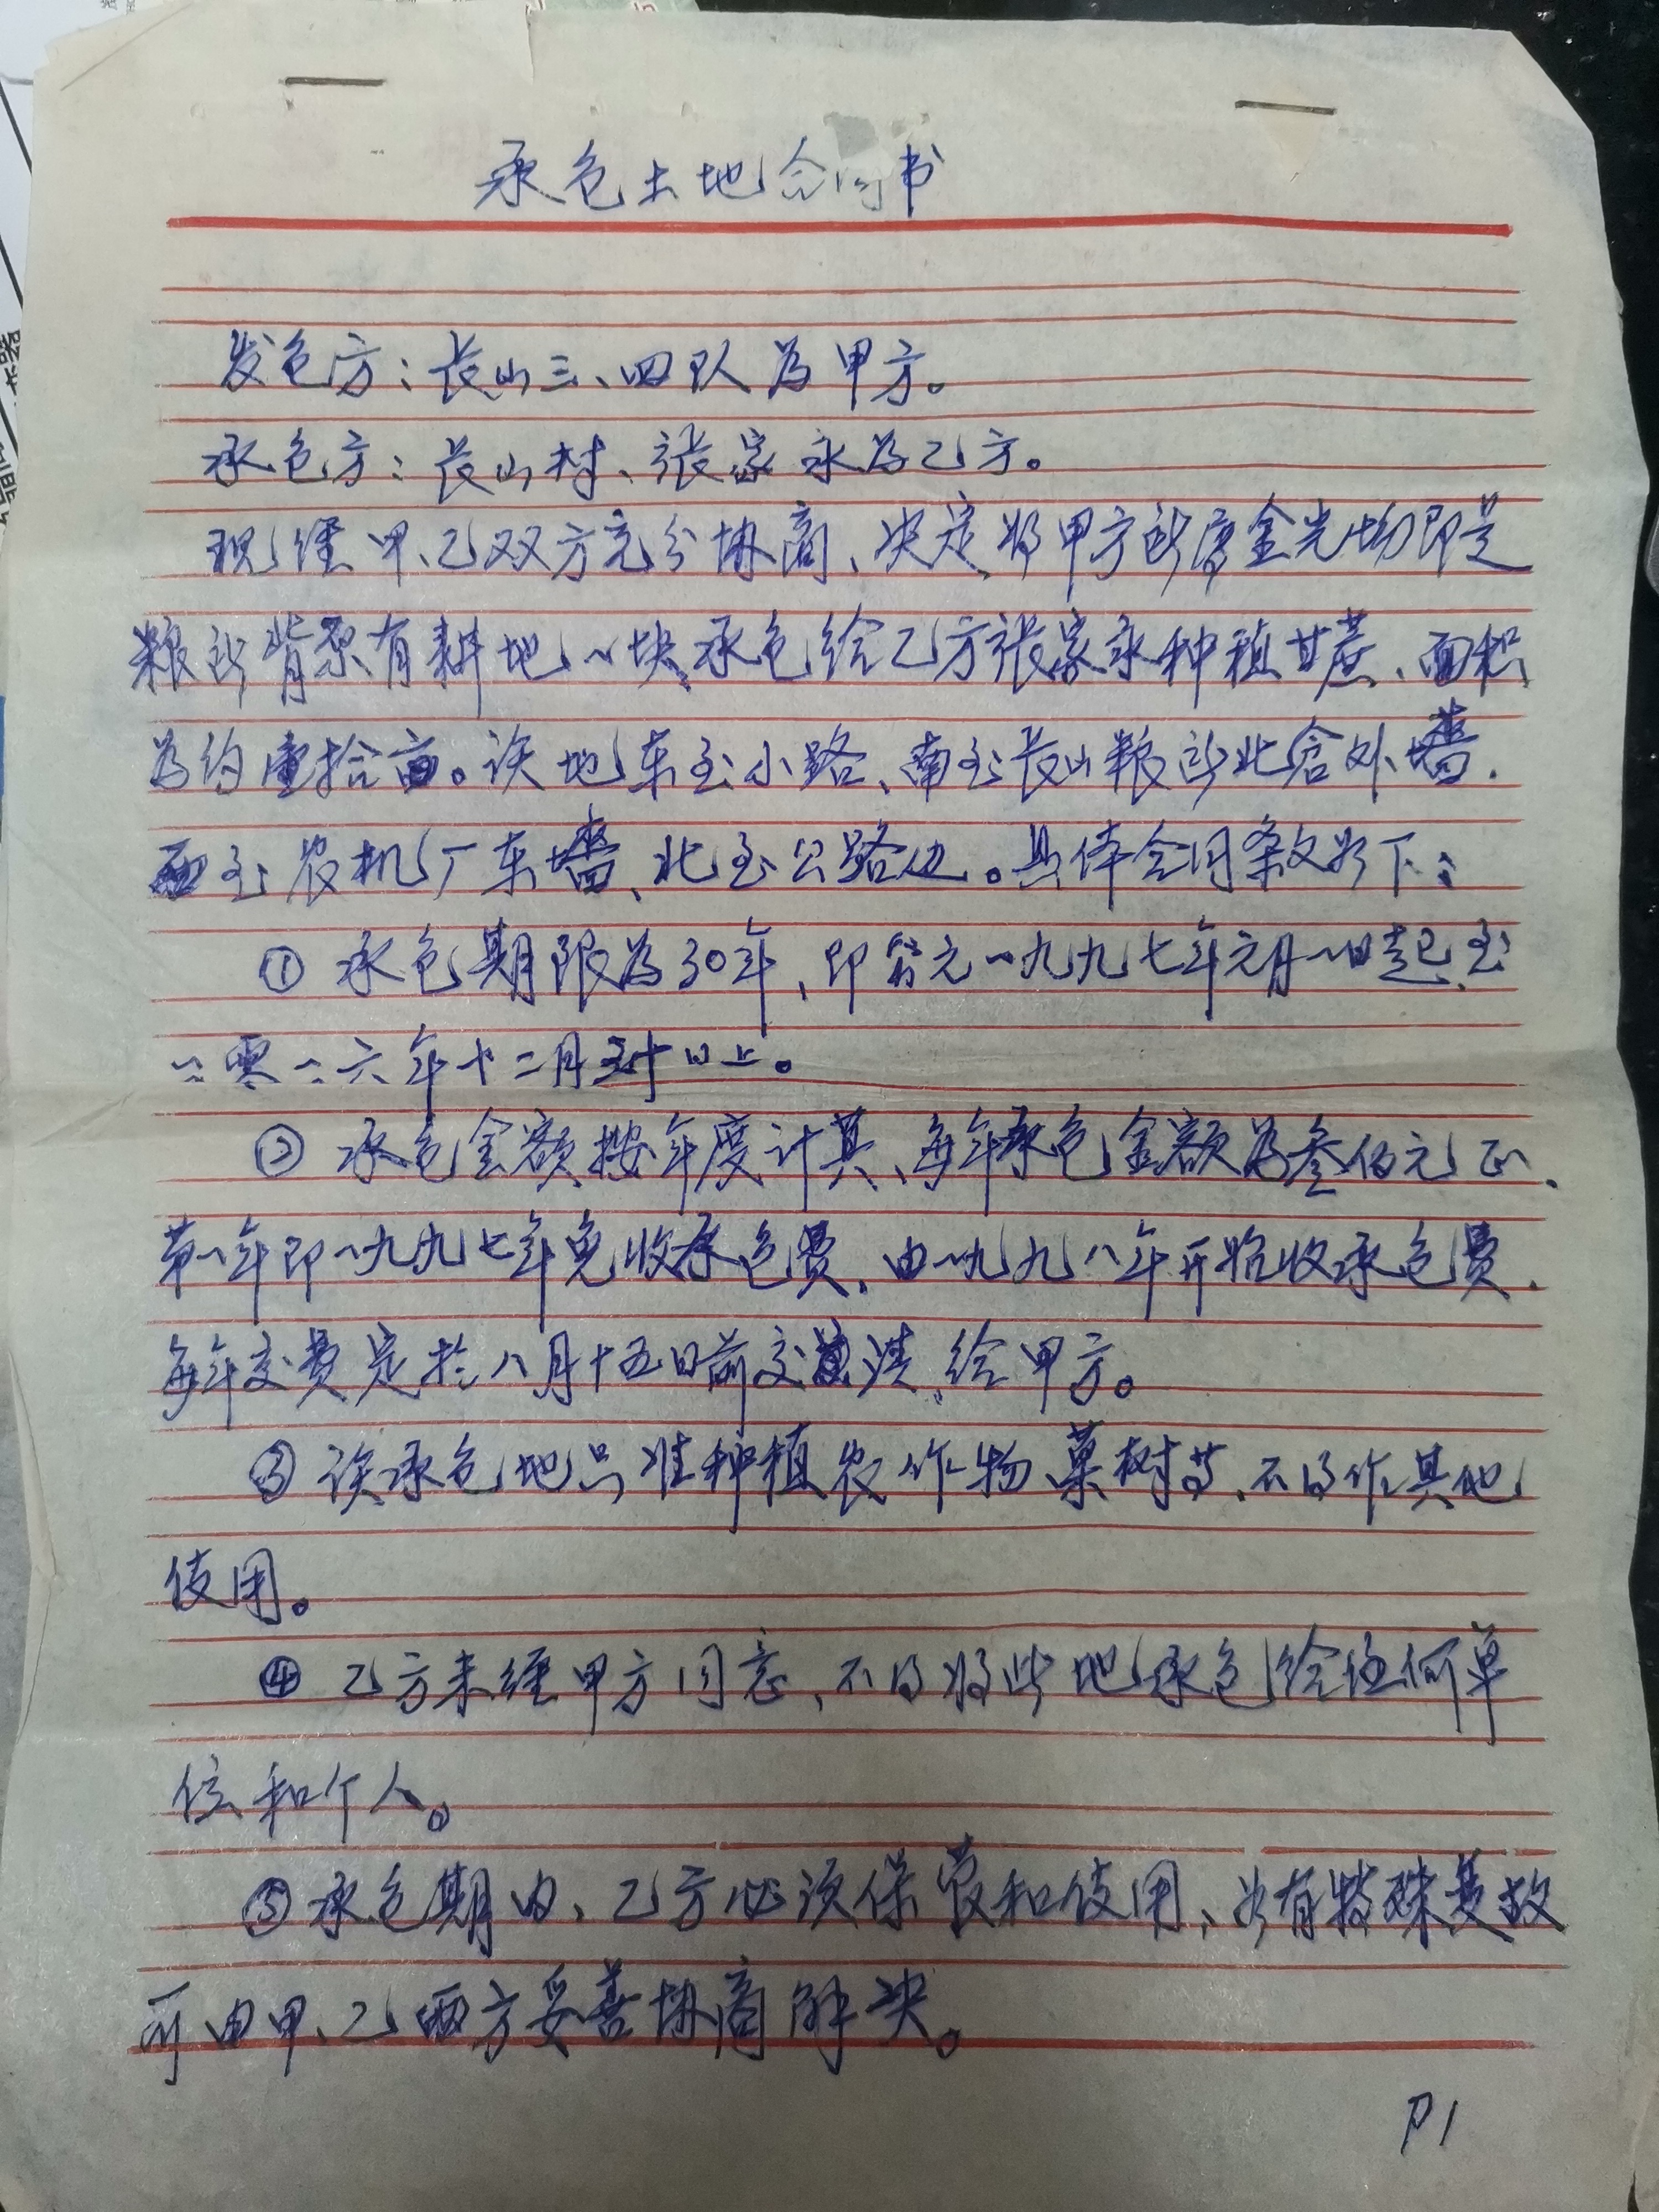 承包土地合同书
发包方：长山三、四队为甲方。
承包方：长山村、张家永为乙方。
现经甲、乙双方充分协商、决定将甲方所属金光场即是
粮所背察有耕地一块承包给乙方张家永种植甘蔗、面积
为约壹拾亩。该地东至小路、南至长山粮所北仓外墙、
西至农机厂东墙、北至公路边。具体合同条文如下：
① 承包期限为30年，即公元一九九七年元月一日起至
二零二六年十二月三十日止。
② 承包金额按年度计算、每年承包金额为叁佰元正、
第一年即一九九七年免收承包费、由一九九八年开始收承包费、
每年交费定于八月十五日前交清给甲方。
③ 该承包地只准种植农作物、菓树等、不得作其他
使用。
④ 乙方未经甲方同意、不得将此地承包给任何单
位和个人。
⑤ 承包期内、乙方必须保管和使用、如有特殊变故
可由甲、乙两方妥善协商解决。
P1